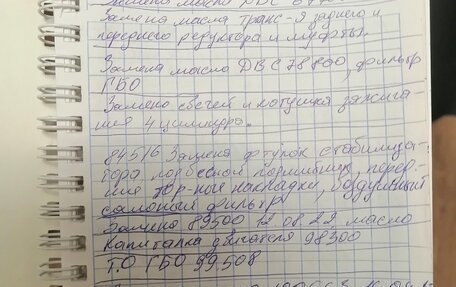 Замена масло ДВС
Замена масла транс-я заднего и
переднего редуктора и муфты.
Замена масло ДВС 78800, фильтр
ГБО
Замено свечей и катушка зажига-
ния 4 цилиндра.
84516 Замена втулок стабилиза-
тора, подвесной подшибник, перед-
ние тор-ные накладки, воздушный
салоный фильтр
Замена 89500 12.08.22, масло
Капиталка двигателя 98300
Т.О ГБО 99.508